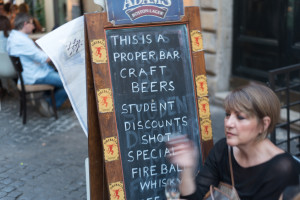 ADAMS
BOSTON LAGER
THIS IS A
PROPER BAR
CRAFT
BEERS
STUDENT
DISCOUNTS
SHOT
SPECIAL
FIRE BAL
WHISKY